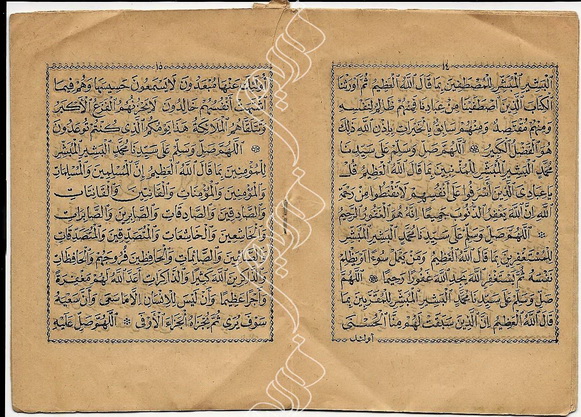 ١٤
البشير المبشر للمصطفين بما قال الله العظيم ثم أورثنا
الكتاب الذين اصطفينا من عبادنا فمنهم ظالم لنفسه
ومنهم مقتصد ومنهم سابق بالخيرات بإذن الله ذلك
هو الفضل الكبير * اللهم صل وسلم على سيدنا
محمد البشير المبشر للمذنبين بما قال الله العظيم قل
يا عبادي الذين أسرفوا على أنفسهم لا تقنطوا من رحمة
الله إن الله يغفر الذنوب جميعا إنه هو الغفور الرحيم
* اللهم صل وسلم على سيدنا محمد البشير المبشر
للمستغفرين بما قال الله العظيم ومن يعمل سوءا أو يظلم
نفسه ثم يستغفر الله يجد الله غفورا رحيما * اللهم
صل وسلم على سيدنا محمد البشير المبشر للمقربين بما
قال الله العظيم إن الذين سبقت لهم منا الحسنى
أولئك
١٥
أولئك عنها مبعدون لا يسمعون حسيسها وهم فيما
اشتهت أنفسهم خالدون لا يحزنهم الفزع الأكبر
وتتلقاهم الملائكة هذا يومكم الذي كنتم توعدون
* اللهم صل وسلم على سيدنا محمد البشير المبشر
للمؤمنين بما قال الله العظيم إن المسلمين والمسلمات
والمؤمنين والمؤمنات والقانتين والقانتات
والصادقين والصادقات والصابرين والصابرات
والخاشعين والخاشعات والمتصدقين والمتصدقات
والصائمين والصائمات والحافظين فروجهم والحافظات
والذاكرين الله كثيرا والذاكرات أعد الله لهم مغفرة
وأجرا عظيما وأن ليس للإنسان إلا ما سعى وأن سعيه
سوف يرى ثم يجزاه الجزاء الأوفى * اللهم صل عليه